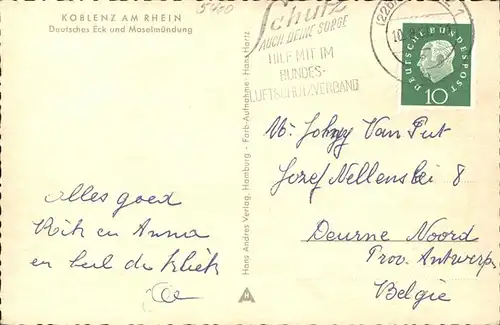 KOBLENZ AM RHEIN
Deutsches Eck und Moselmündung
5400
Schutz
AUCH DEINE SORGE
HILF MIT IM
BUNDES-
LUFTSCHUTZVERBAND
(22b)
10
DEUTSCHE BUNDESPOST
10
Hans Andres Verlag, Hamburg - Farb-Aufnahme: Hans Hartz
alles goed
Rik en Anna
en heel de kliek
M. Johny Van Put
Jozef Nellenslei 8
Deurne Noord
Prov. Antwerpen
Belgie